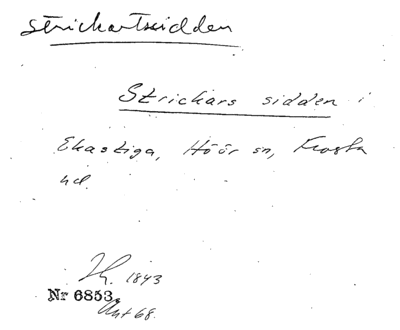 Strickartssidden
Strickars sidden i
Ekastiga, Höör sn, Frosta
hd.
1843
Nr 6853.
Ant 68.